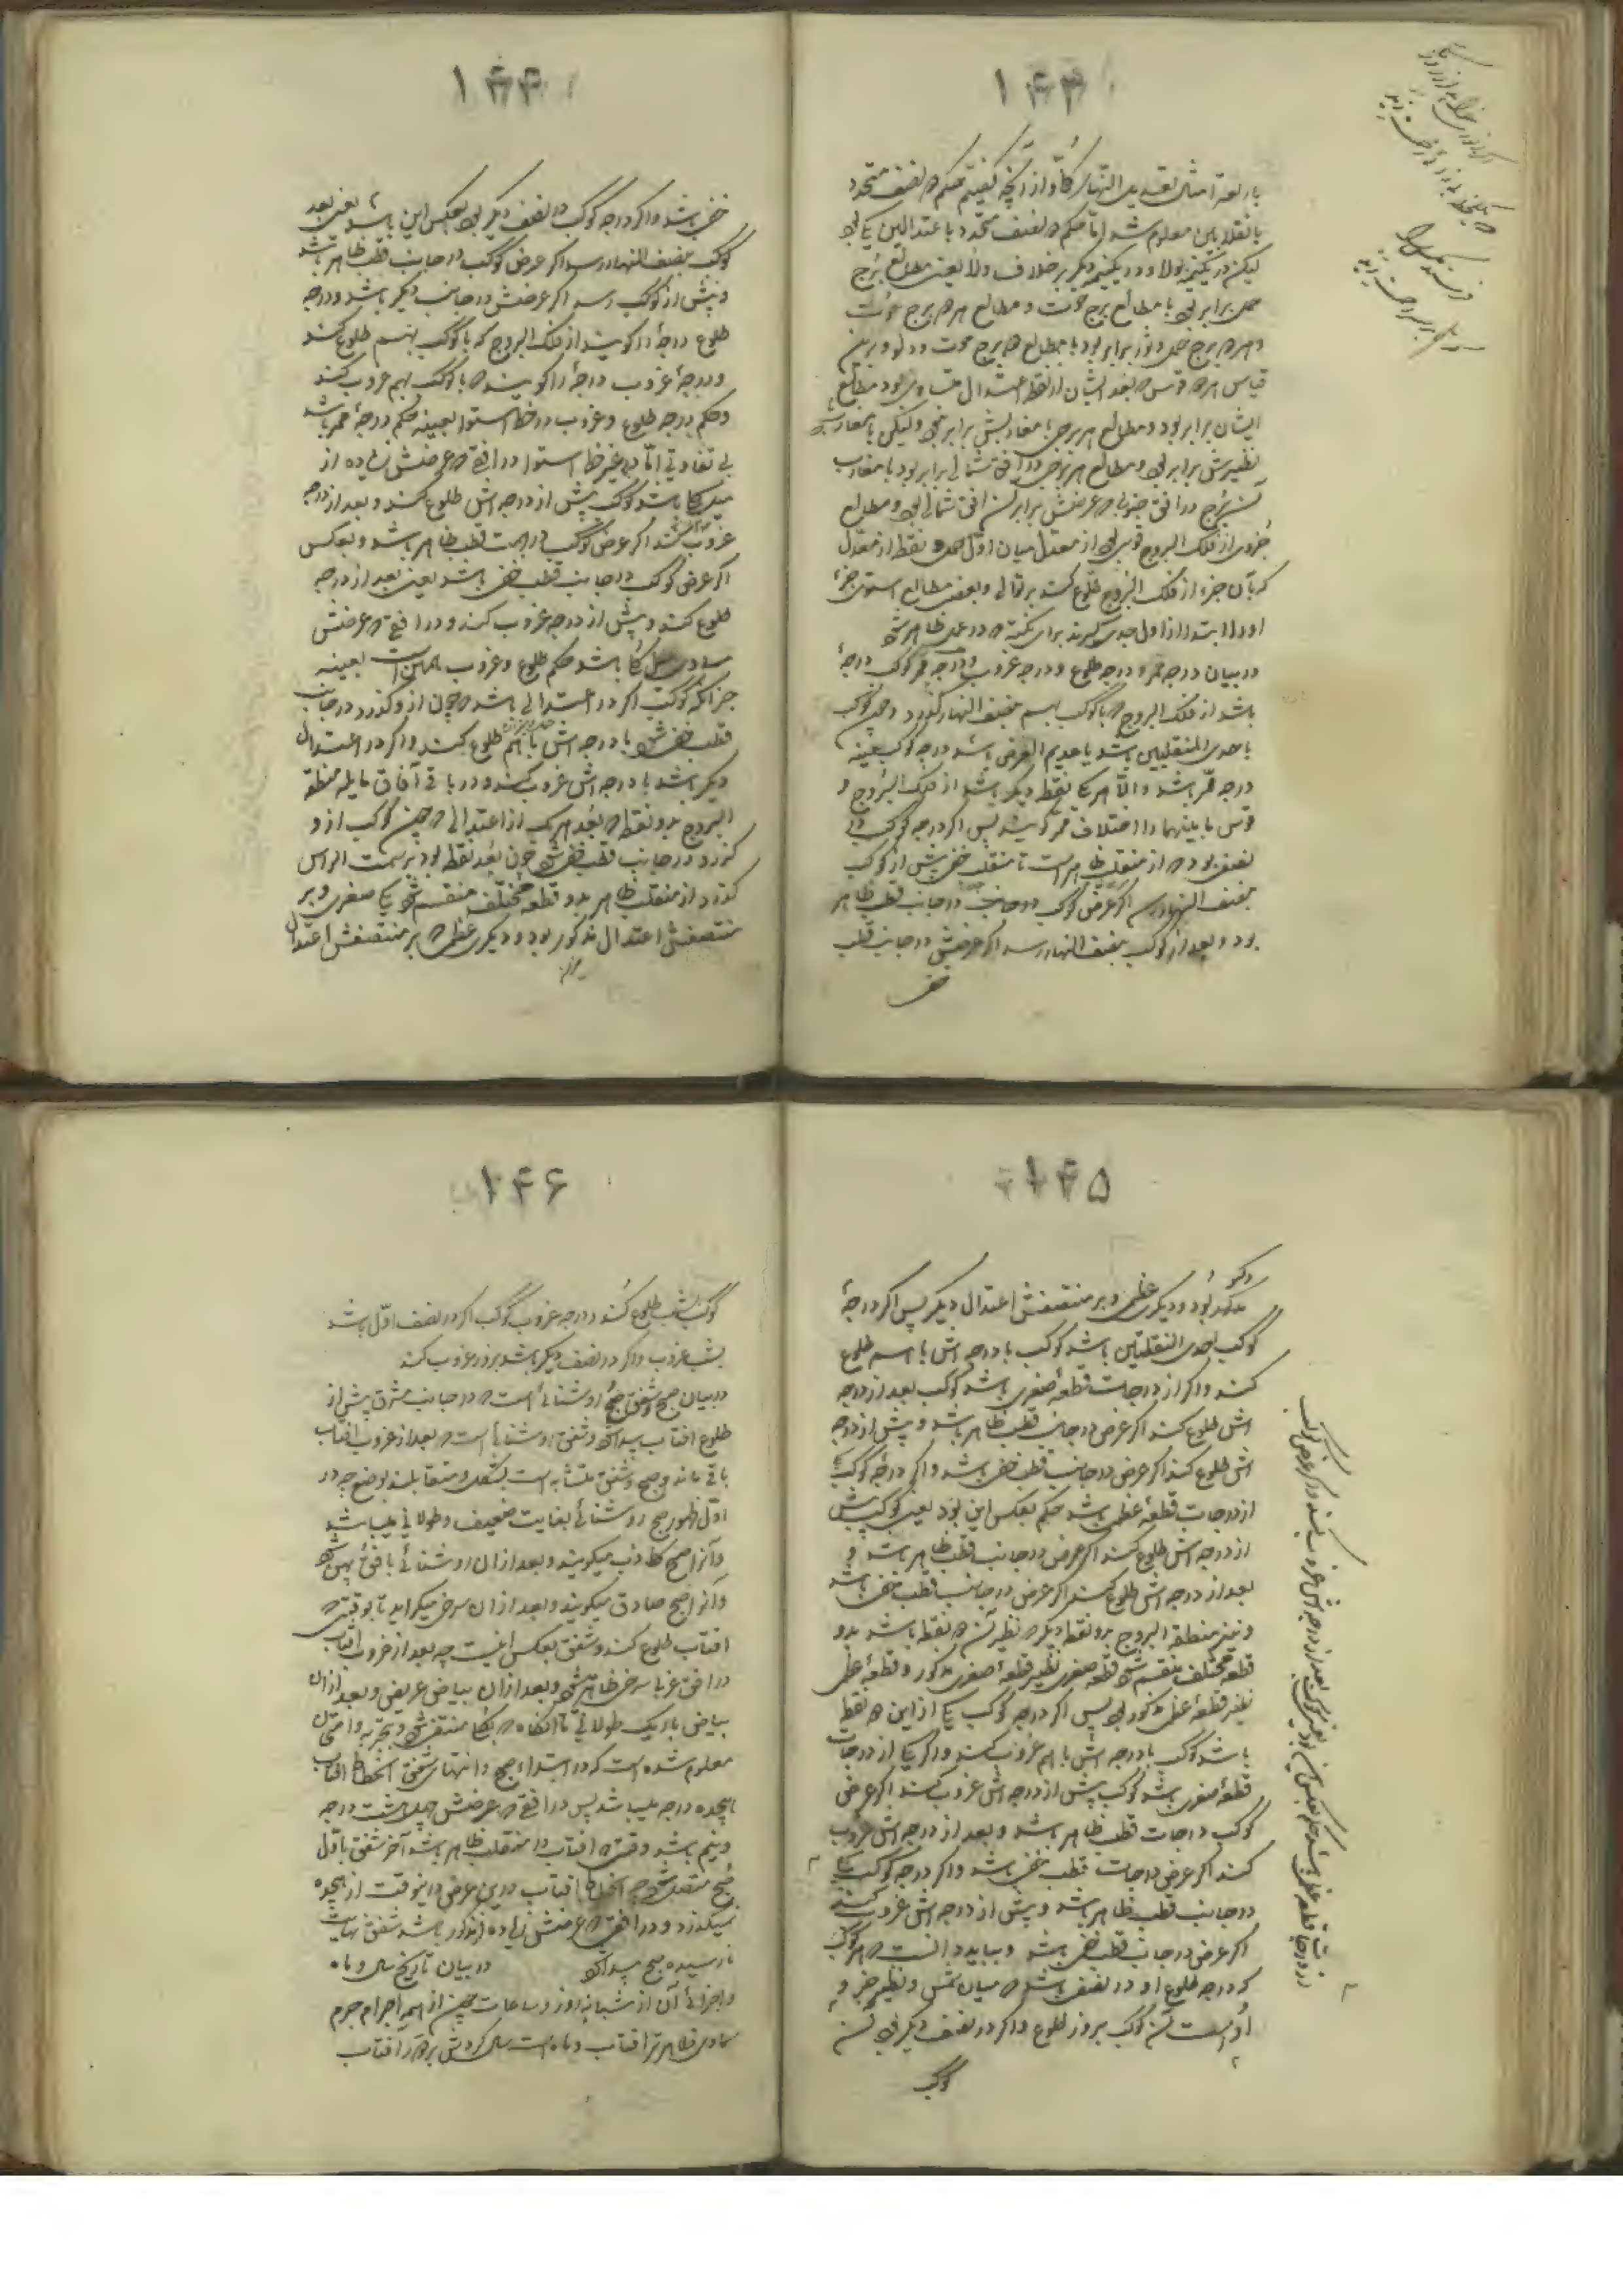 ۱۴۳
باربعة امثال تعدیل النهار کلا و از آنچه گفتیم حکم دو نصف متحدد
بانقلابین معلوم شد اما حکم دو نصف محدد باعتدالین یکی بود
لیکن در یکنیمه بولا و در یکنیمه دیگر بر خلاف ولا یعنی مطالع برج
حمل برابر بود با مطالع برج حوت و مطالع هر دو برج حوت
و هر دو برج حمل و ثور برابر بود با مطالع دو برج حوت و دلو و برین
قیاس هر دو قوس که بعد ایشان از نقطه اعتدال متساوی بود مطالع
ایشان برابر بود و مطالع هر برجی با مغاربش برابر نبود ولیکن با مغارب
نظیرش برابر بود و مطالع هر برجی در افق شمالی برابر بود با مغارب
آن برج در افق جنوبی که عرضش برابر آن افق شمالی بود و مطالع
جزوی از فلک البروج قوسی بود از معدل میان اول حمل و نقطه از معدل
که با آن جزء از فلک البروج طلوع کند بر توالی و بعضی مطالع استوای جزء
او را ابتدا از اول جدی گیرند برای نکته که در عمل ظاهر شود
در بیان درجه ممر و درجه طلوع و درجه غروب درجه ممر کوکب درجهٔ
باشد از فلک البروج که با کوکب بهم بنصف النهار گذرد و چون کوکب
باحدی المنقلبین باشد یا عدیم العرض باشد درجه کوکب بعینه
درجه ممر باشد و الا هر یک نقطه دیگر باشد از فلک البروج و
قوس ما بینهما را اختلاف ممر گویند پس اگر درجه کوکب در
نصفی بود که از منقلب ظاهر است تا منقلب خفی پیش از کوکب
بنصف النهار رسد اگر عرض کوکب در جانب قطب ظاهر
بود و بعد از کوکب بنصف النهار رسد اگر عرضش در جانب قطب
خفی
۱۴۴
خفی باشد و اگر درجه کوکب در نصف دیگر بود بعکس این باشد یعنی بعد
کوکب بنصف النهار رسد اگر عرض کوکب در جانب قطب ظاهر باشد
و پیش از کوکب رسد اگر عرضش در جانب دیگر باشد و درجه
طلوع درجهٔ را گویند از فلک البروج که با کوکب بهم طلوع کند
و درجهٔ غروب درجهٔ را گویند که با کوکب بهم غروب کند
و حکم درجه طلوع و غروب در خط استوا بعینه حکم درجهٔ ممر باشد
بی تفاوتی اما در غیر خط استوا در افقی که عرضش زیاده از
میل کلی باشد کوکب پیش از درجه اش طلوع کند و بعد از درجه
غروب کند اگر عرض کوکب در جهت قطب ظاهر باشد و بعکس
اگر عرض کوکب در جانب قطب خفی باشد یعنی بعد از درجه
طلوع کند و پیش از درجه غروب کند و در افقی که عرضش
مساوی میل کلی باشد حکم طلوع و غروب همین است بعینه
جز آنکه کوکب اگر در اعتدالی باشد که چون از و گذرد در جانب
قطب خفی شود با درجه اش با هم طلوع کند و اگر در اعتدال
دیگر باشد با درجه اش غروب کند و در باقی آفاق مایله منطقه
البروج بدو نقطه که بعد هر یک از اعتدالی که چون کوکب از و
گذرد در جانب قطب خفی شود چون بعد نقطه بود بر سمت الراس
گذرد از منقلب ظاهر بدو قطعه مختلفه منقسم شود یکی صغری و بر
منتصفش اعتدال مذکور بود و دیگری عظمی که بر منتصفش اعتدال
۱۴۵
مذکور بود و دیگری عظمی و بر منتصفش اعتدال دیگر پس اگر درجهٔ
کوکب احدی المنقلبین باشد کوکب با درجه اش با هم طلوع
کند و اگر از درجات قطعهٔ صغری باشد کوکب بعد از درجه
اش طلوع کند اگر عرض در جانب قطب ظاهر باشد و پیش از درجه
اش طلوع کند اگر عرض در جانب قطب خفی باشد و اگر درجهٔ کوکب
از درجات قطعهٔ عظمی باشد حکم بعکس این بود یعنی کوکب پیش
از درجه اش طلوع کند اگر عرض در جانب قطب ظاهر باشد و
بعد از درجه اش طلوع کند اگر عرض در جانب قطب خفی باشد
و نیز منطقه البروج بدو نقطه دیگر که نظیر آن دو نقطه باشد بدو
قطعه مختلف منقسم شود قطعه صغری نظیر قطعهٔ صغری مذکور و قطعهٔ عظمی
نظیر قطعهٔ عظمی مذکور بود پس اگر درجه کوکب یکی از این دو نقطه
باشد کوکب با درجه اش با هم غروب کند و اگر یکی از درجات
قطعهٔ صغری باشد کوکب پیش از درجه اش غروب کند اگر عرض
کوکب در جانب قطب ظاهر باشد و بعد از درجه اش غروب
کند اگر عرض در جانب قطب خفی باشد و اگر درجه کوکب یکی
در جانب قطب ظاهر باشد و پیش از درجه اش غروب کند
اگر عرض در جانب قطب خفی باشد و بباید دانست که هر کوکب
که درجه طلوع او در نصف باشد که میان شمس و نظیر جزو
اوست آن کوکب بروز طلوع و اگر در نصف دیگر بود آن
کوکب
۱۴۶
کوکب بشب طلوع کند و درجه غروب کوکب اگر در نصف اول باشد
بشب غروب و اگر در نصف دیگر باشد بروز غروب کند
در بیان صبح و شفق صبح روشنائی است که در جانب مشرق پیش از
طلوع افتاب پیدا شود و شفق روشنائی است که بعد از غروب افتاب
باقی ماند و صبح و شفق متشابه است بشکل و متقابلند بوضع چه در
اول ظهور صبح روشنائی بغایت ضعیف و طولانی میباشد
و آنرا صبح کاذب میگویند و بعد از ان روشنائی با فق پهن شود
و آنرا صبح صادق میگویند و بعد از ان سرخی میگراید تا بوقتی که
افتاب طلوع کند و شفق بعکس اینست چه بعد از غروب افتاب
در افق غربی سرخی ظاهر شود و بعد از ان بیاض عریض و بعد از ان
بیاض باریک طولانی تا آنگاه که بکلی منتفی شود و بتجربه و امتحان
معلوم شده است که در ابتداء صبح و انتهاء شفق انحطاط افتاب
هیجده درجه میباشد پس در افقی که عرضش چهل و هشت درجه
و نیم باشد وقتی که افتاب در منقلب ظاهر باشد آخر شفق باول
صبح متصل شود چه انحطاط افتاب درین عرض درینوقت از هیجده
نمیگذرد و در افقی که عرضش زیاده از مذکور باشد شفق نهایت
نارسیده صبح پیدا شود در بیان تاریخ سال و ماه
و اجزائ آن از شبانه روز و ساعات چون از همه اجرام جرم
سماوی ظاهرتر افتاب و ماه است سال گردش بر دور افتاب